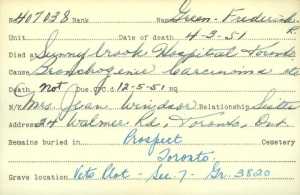 No 407038 Rank Name Green - Frederick R.
Unit Date of death 4-3-51
Died at Sunny brook Hospital Toronto
Cause Bronchogenic Carcinoma etc
Death Not Due. O.C. 12-5-51 nq
N/K Mrs. Jean Windsor Relationship Sister
Address 24 Walmer Rd, Toronto, Ont
Remains buried in Prospect Cemetery
Toronto.
Grave location Vets Plot - Sec. 7 - Gr. 3820